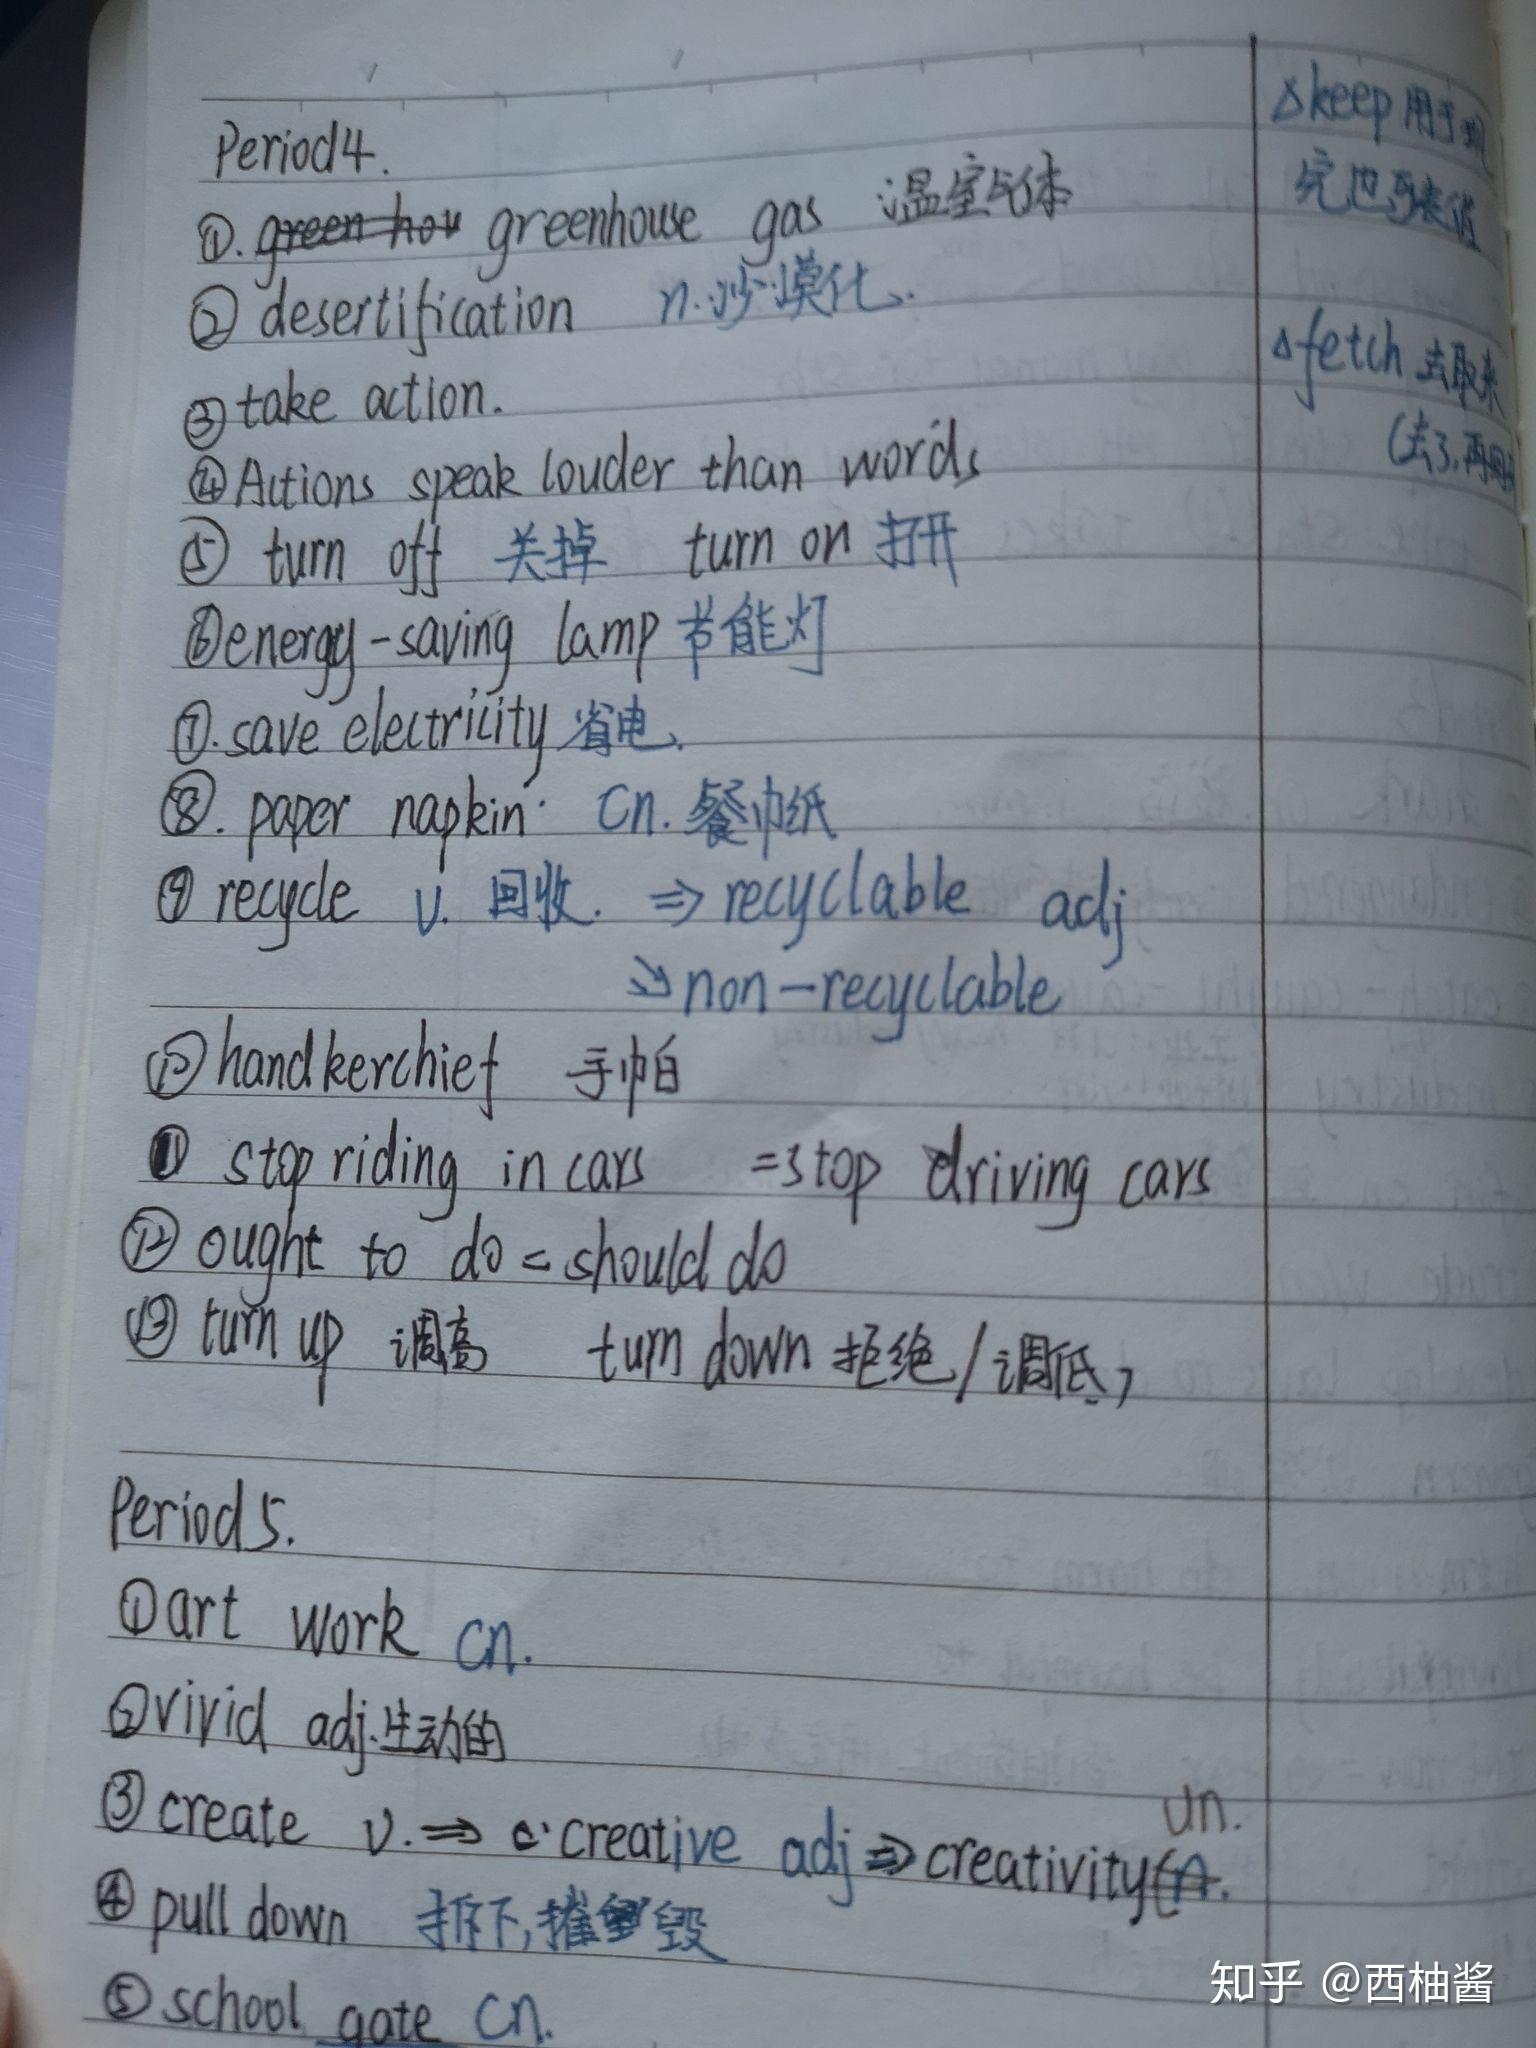 Period 4.
①. green hou greenhouse gas 温室气体
② desertification n. 沙漠化.
③ take action.
④ Actions speak louder than words
⑤ turn off 关掉 turn on 打开
⑥ energy-saving lamp 节能灯
⑦. save electricity 省电.
⑧. paper napkin· Cn. 餐巾纸
⑨ recycle v. 回收. ⇒ recyclable adj
↘ non-recyclable
⑩ handkerchief 手帕
⑪ stop riding in cars = stop driving cars
⑫ ought to do = should do
⑬ turn up 调高 turn down 拒绝/调低,
Period 5.
① art work Cn.
② vivid adj.生动的
③ create v. ⇒ creative adj ⇒ creativity Un.
④ pull down 拆下,摧毁
⑤ school gate Cn.
△keep 用于
△fetch 去取来
(去了,再
知乎 @西柚酱